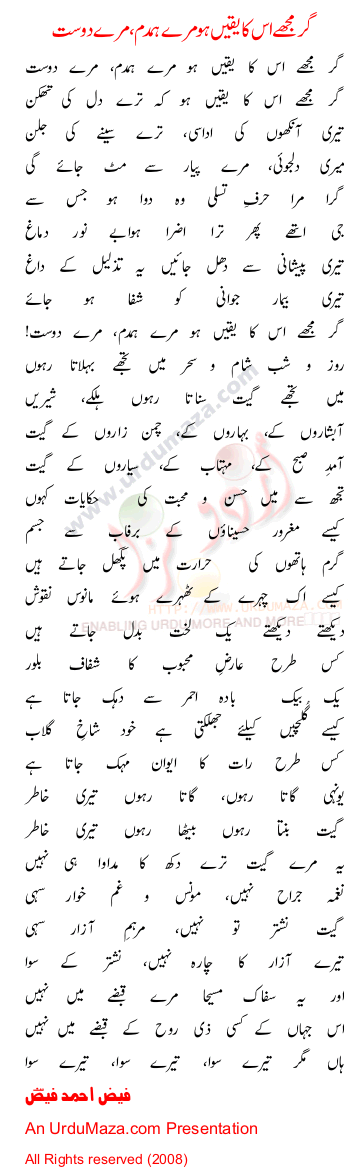 گر مجھے اس کا یقیں ہو مرے ہمدم، مرے دوست
گر مجھے اس کا یقیں ہو مرے ہمدم، مرے دوست
گر مجھے اس کا یقیں ہو کہ ترے دل کی تھکن
تیری آنکھوں کی اداسی، ترے سینے کی جلن
میری دلجوئی، مرے پیار سے مٹ جائے گی
گرا مرا حرفِ تسلی وہ دوا ہو جس سے
جی اٹھے پھر ترا اضرا ہوابے نور دماغ
تیری پیشانی سے دھل جائیں یہ تذلیل کے داغ
تیری بیمار جوانی کو شفا ہو جائے
گر مجھے اس کا یقیں ہو مرے ہمدم، مرے دوست!
روز و شب شام و سحر میں تجھے بہلاتا رہوں
میں تجھے گیت سناتا رہوں ہلکے، شیریں
آبشاروں کے، بہاروں کے، چمن زاروں کے گیت
آمدِ صبح کے، مہتاب کے، سیاروں کے گیت
تجھ سے میں حسن و محبت کی حکایات کہوں
کیسے مغرور حسیناؤں کے برفاب سے جسم
گرم ہاتھوں کی حرارت میں پگھل جاتے ہیں
کیسے اک چہرے کے ٹھہرے ہوئے مانوس نقوش
دیکھتے دیکھتے یک لخت بدل جاتے ہیں
کس طرح عارضِ محبوب کا شفاف بلور
یک بیک بادہ احمر سے دہک جاتا ہے
کیسے گلچیں کیلئے جھلکتی ہے خود شاخِ گلاب
کس طرح رات کا ایوان مہک جاتا ہے
یونہی گاتا رہوں، گاتا رہوں تیری خاطر
گیت بنتا رہوں بیٹھا رہوں تیری خاطر
یہ مرے گیت ترے دکھ کا مداوا ہی نہیں
نغمہ جراح نہیں، مونس و غم خوار سہی
گیت نشتر تو نہیں، مرہمِ آزار سہی
تیرے آزار کا چارہ نہیں، نشتر کے سوا
اور یہ سفاک مسیحا مرے قبضے میں نہیں
اس جہاں کے کسی ذی روح کے قبضے میں نہیں
ہاں مگر تیرے سوا، تیرے سوا، تیرے سوا
فیض احمد فیض
An UrduMaza.com Presentation
All Rights reserved (2008)
www.urdumaza.com
اردو مزا
HTTP://WWW.URDUMAZA.COM
ENABLING URDU MORE AND MORE